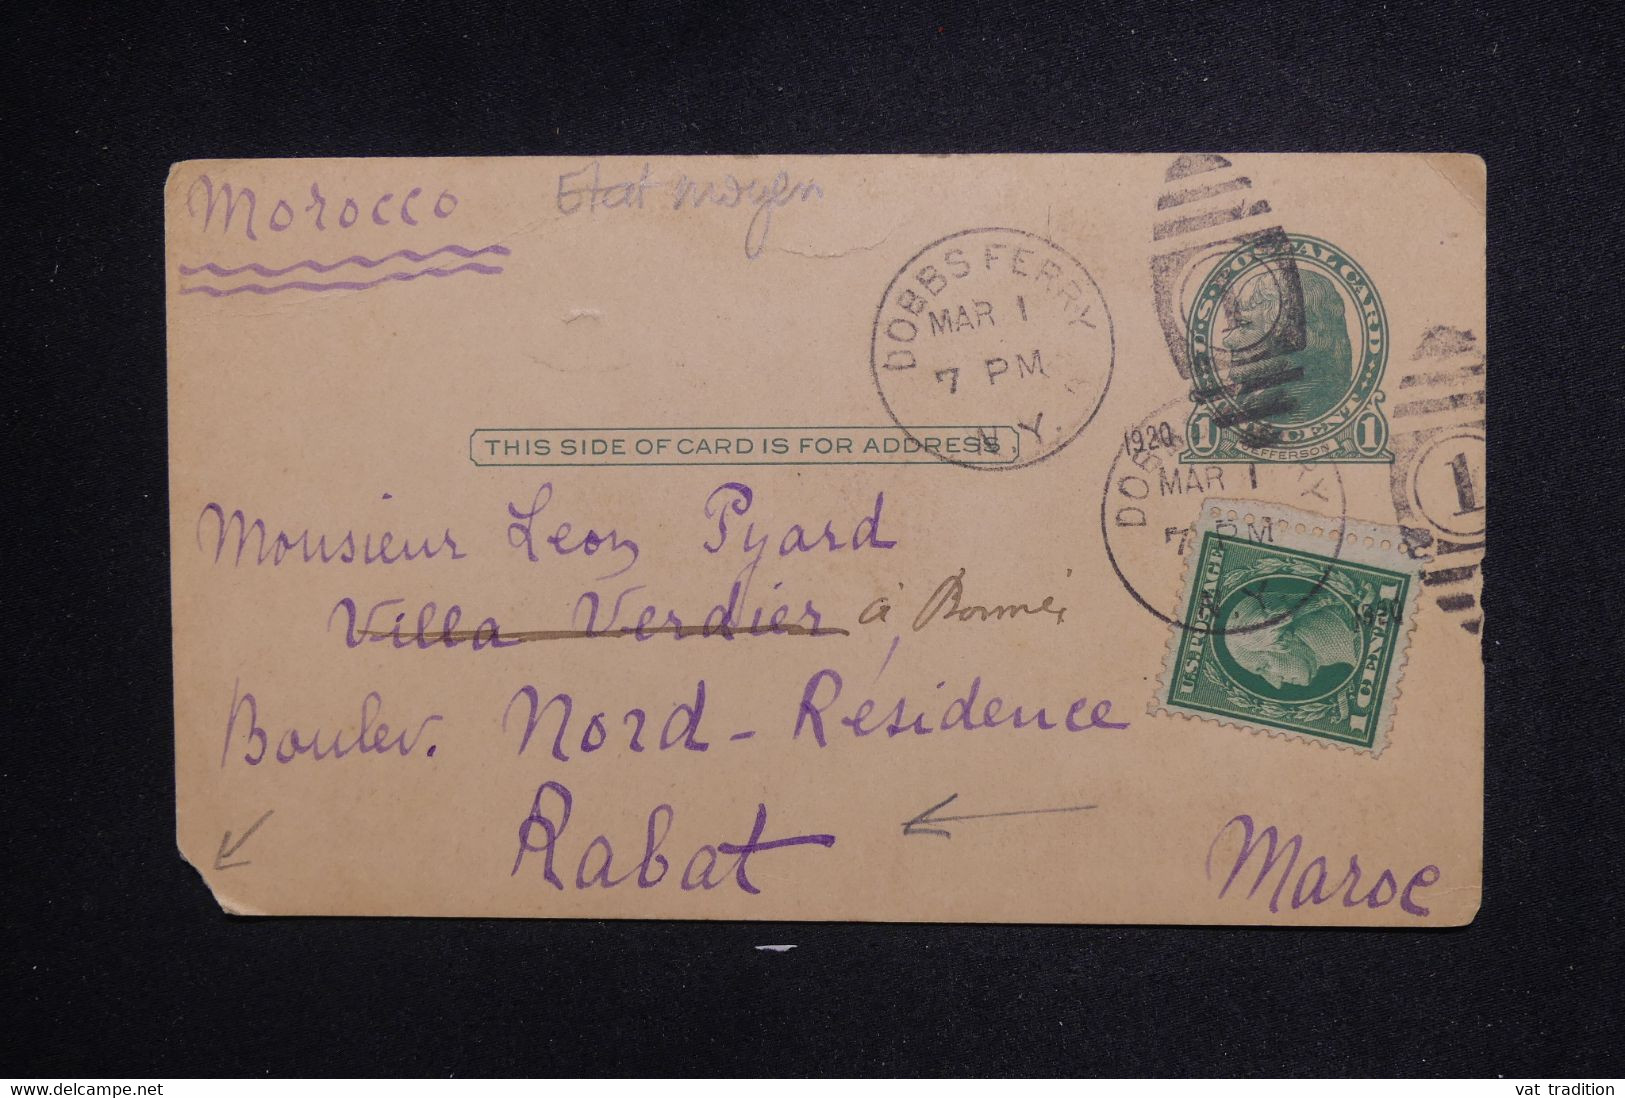 Morocco
Etat moyen
DOBBS FERRY
MAR 1
7 PM
N.Y.
1920
U.S. POSTAL CARD
1 CENT 1
JEFFERSON
THIS SIDE OF CARD IS FOR ADDRESS.
DOBBS FERRY
MAR 1
7 PM
1920
1
U.S. POSTAGE
1 CENT 1
Monsieur Leon Pyard
Villa Verdier, à
Boulev. Nord - Résidence
Rabat
Maroc
www.delcampe.net
vat tradition